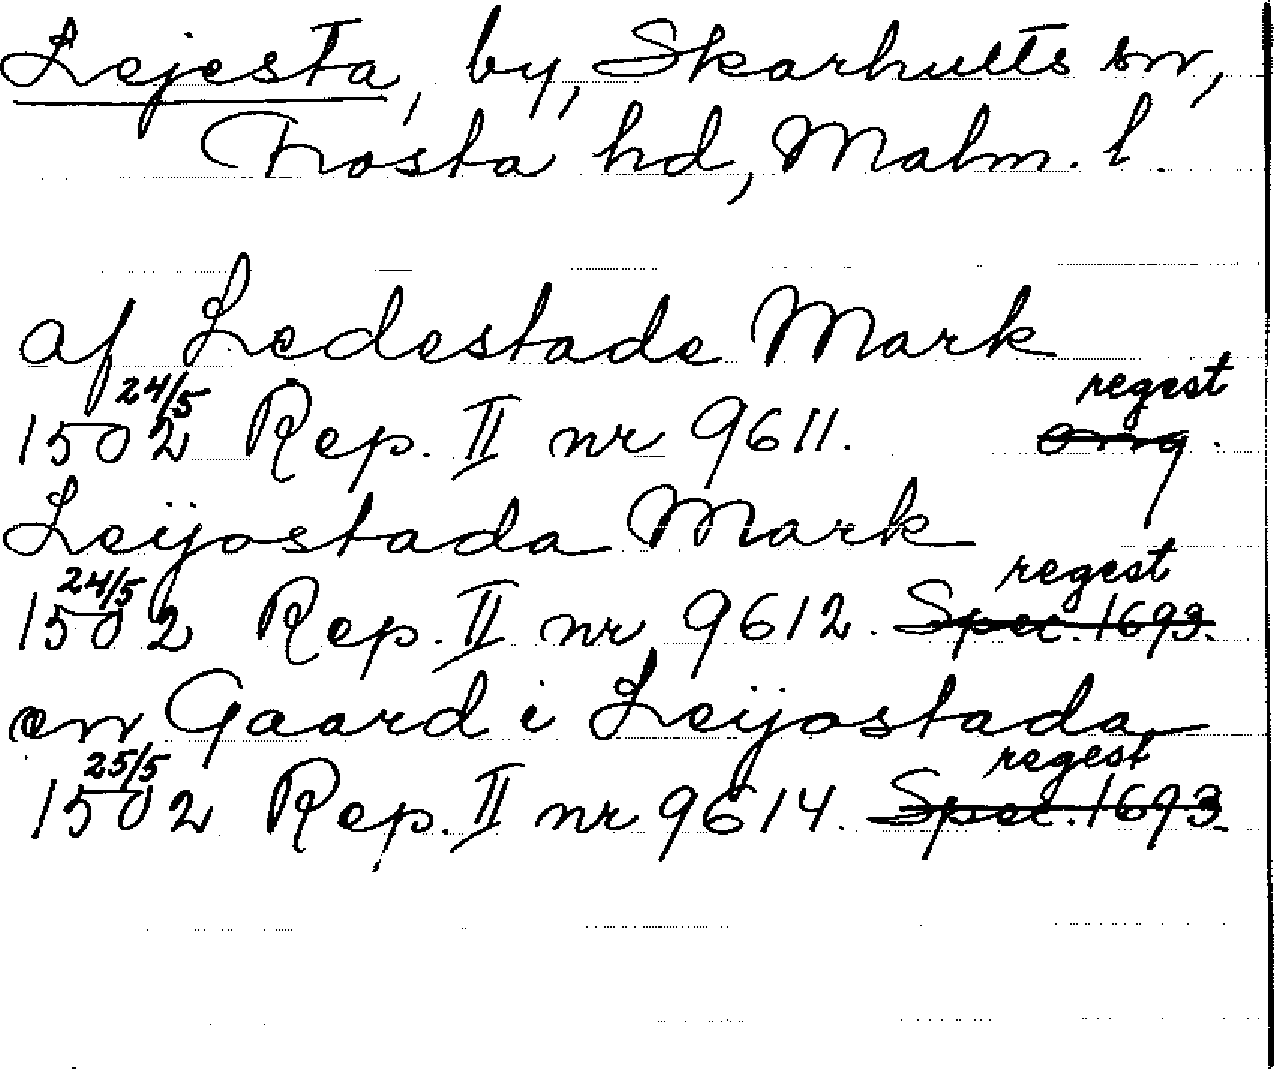 Lejesta, by, Skarhults sn,
Frosta hd, Malm. l.
af Ledestade Mark
1502 24/5 Rep. II nr 9611. orig. regest
Leijostada Mark
1502 24/5 Rep. II nr 9612. Spec. 1693. regest
en Gaard i Leijostada
1502 25/5 Rep. II nr 9614. Spec. 1693. regest